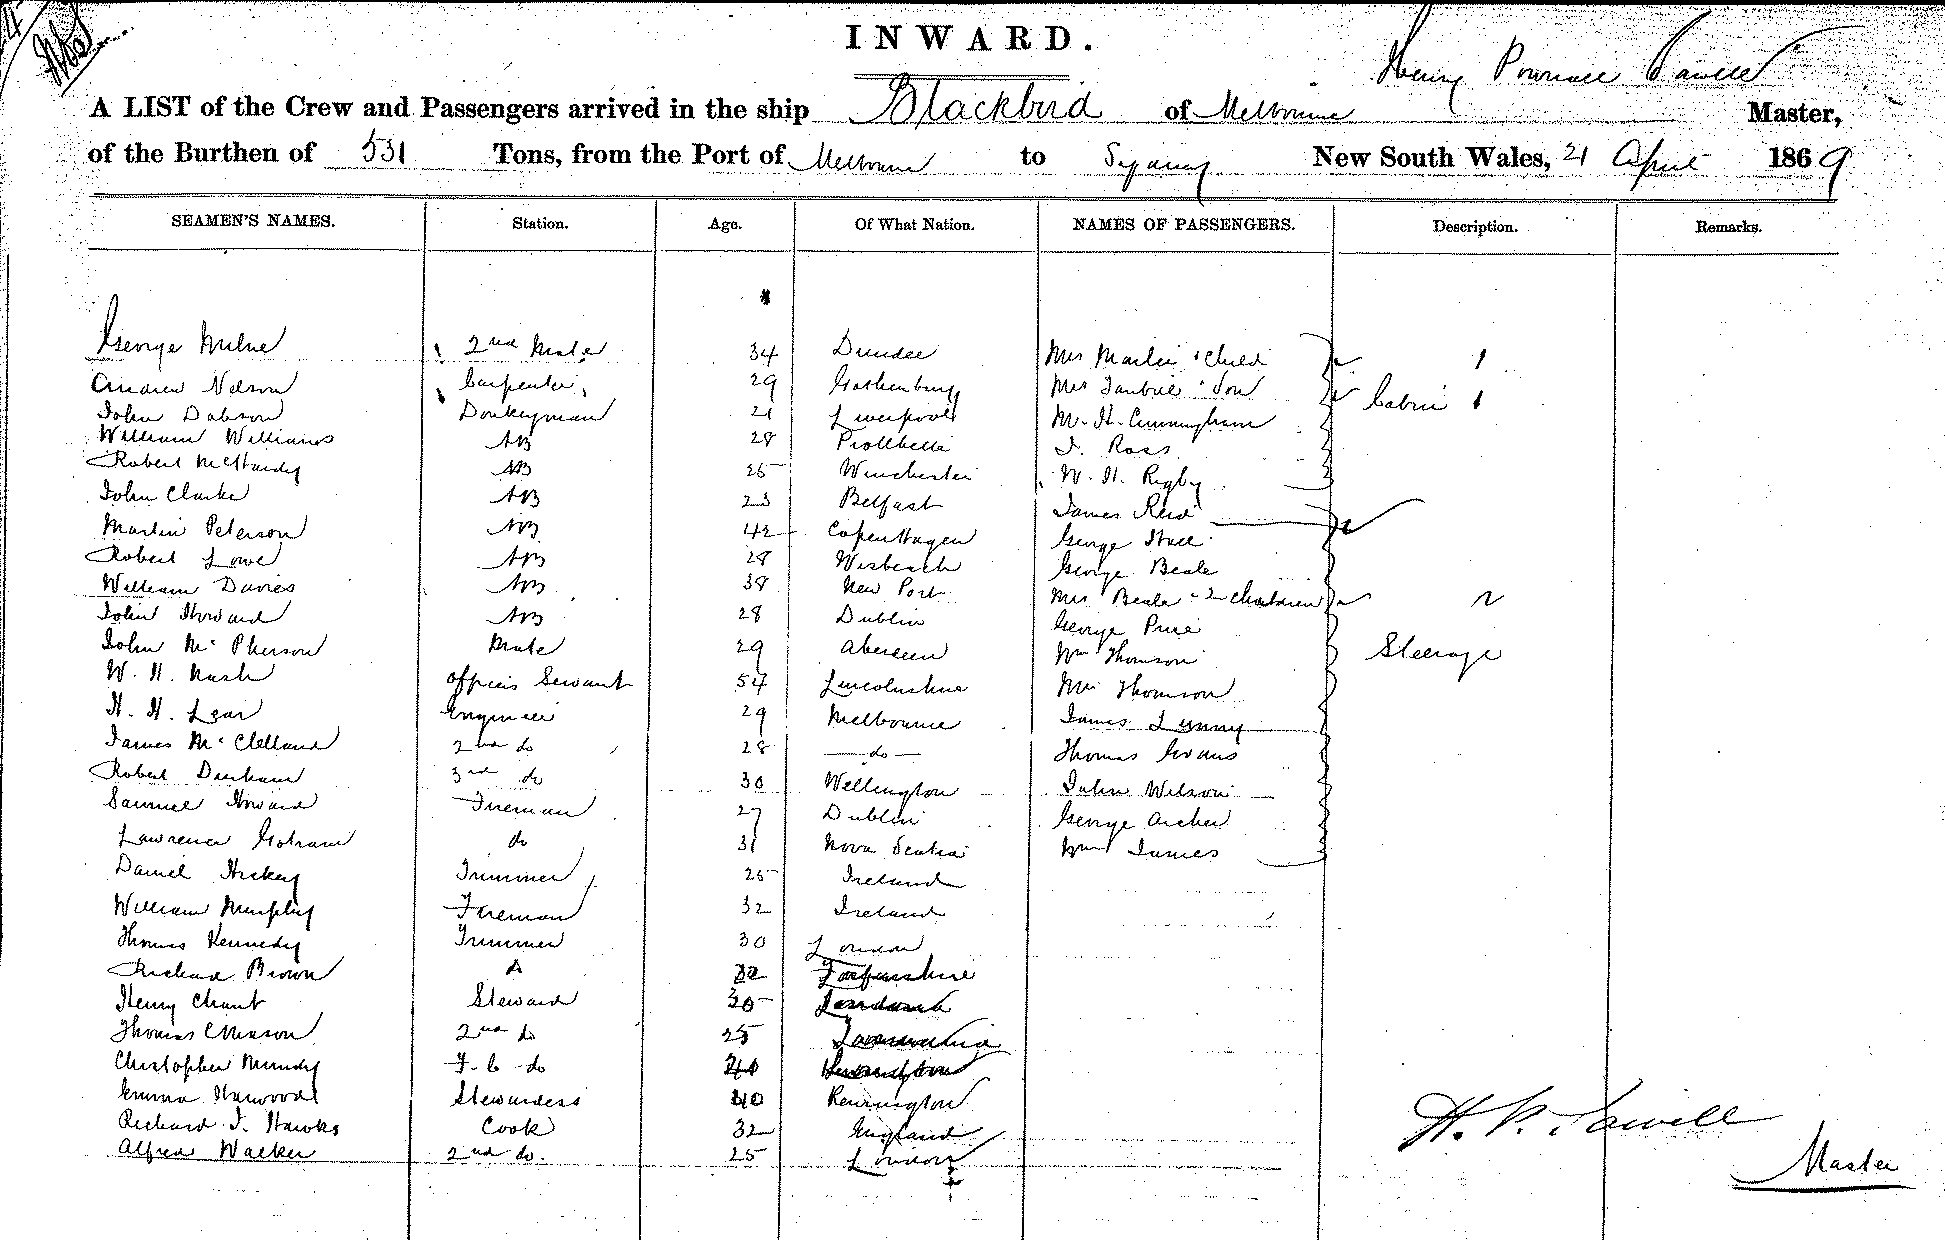 INWARD.
Henry Pownall
A LIST of the Crew and Passengers arrived in the ship Blackbird of Melbourne Master,
of the Burthen of 531 Tons, from the Port of Melbourne to Sydney New South Wales, 21 April 1869
SEAMEN'S NAMES. Station. Age. Of What Nation. NAMES OF PASSENGERS. Description. Remarks.
George Milne 2nd Mate 34 Dundee Mrs Martin & Child 1
Andrew Nelson Carpenter 29 Gothenburg Mrs & Son Cabin 1
John Dobson Donkeyman 21 Liverpool H. Cunningham
William Williams AB 28 J. Ross
Robert McHardy AB 25 Winchester W. H. Rigby
John Clarke AB 23 Belfast James Reid
Martin Peterson AB 42 CopenHagen George Hall
Robert Lowe AB 28 Wisbeach George Beale
William Davies AB 38 New Port Mrs Beale & 2 Children 2
John Howard AB 28 Dublin George Price
John McPherson Mate 29 Aberdeen Wm Thomson Steerage
W. H. Nash Officers Servant 54 Lincolnshire Thomson
H. H. Lear Engineer 29 Melbourne James
James McClelland 2nd do 28 do Thomas Evans
Robert Denham 3rd do 30 Wellington John Wilson
Samuel Howard Fireman 27 Dublin George Archer
Lawrence do 31 Nova Scotia Wm James
Daniel Hickey Trimmer 25 Ireland
William Murphy Fireman 32 Ireland
Thomas Kennedy Trimmer 30 London
Richard Brown do 22 Forfarshire
Henry Chant Steward 30
Thomas Mason 2nd do 25
Christopher Mundy F. C. do
Emma Harwood Stewardess 40 Kennington
Richard J. Hawks Cook 32 England
Alfred Walker 2nd do. 25 London
H. P.
Master